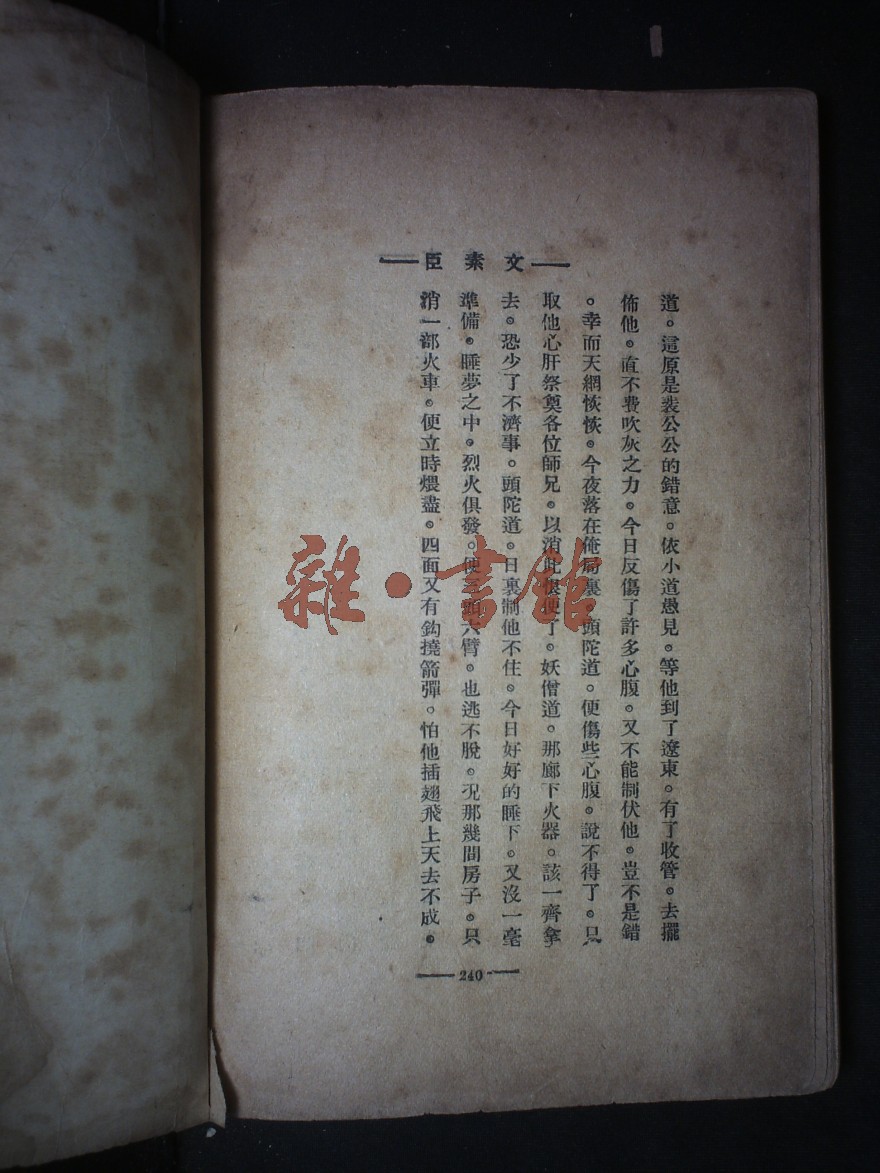 文素臣
道。這原是裴公公的錯意。依小道愚見。等他到了遼東。有了收管。去擺
佈他。直不費吹灰之力。今日反傷了許多心腹。又不能制伏他。豈不是錯
。幸而天網恢恢。今夜落在俺局裏。頭陀道。便傷些心腹。說不得了。只
取他心肝祭奠各位師兄。以消此恨便了。妖僧道。那廊下火器。該一齊拿
去。恐少了不濟事。頭陀道。日裏制他不住。今日好好的睡下。又沒一毫
準備。睡夢之中。烈火俱發。便三頭六臂。也逃不脫。況那幾間房子。只
消一部火車。便立時煨盡。四面又有鈎撓箭彈。怕他插翅飛上天去不成。
240
雜·書館